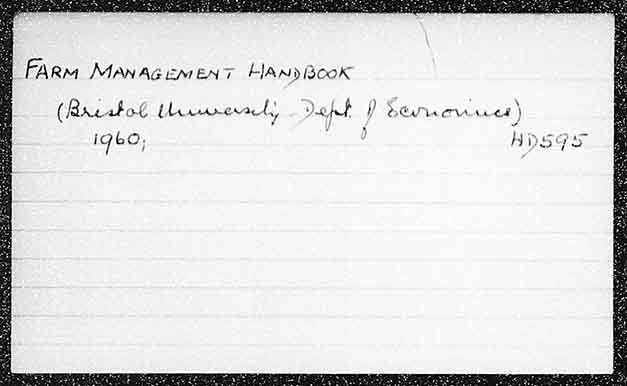 FARM MANAGEMENT HANDBOOK
(Bristol University - Dept. of Economics)
1960; HD595